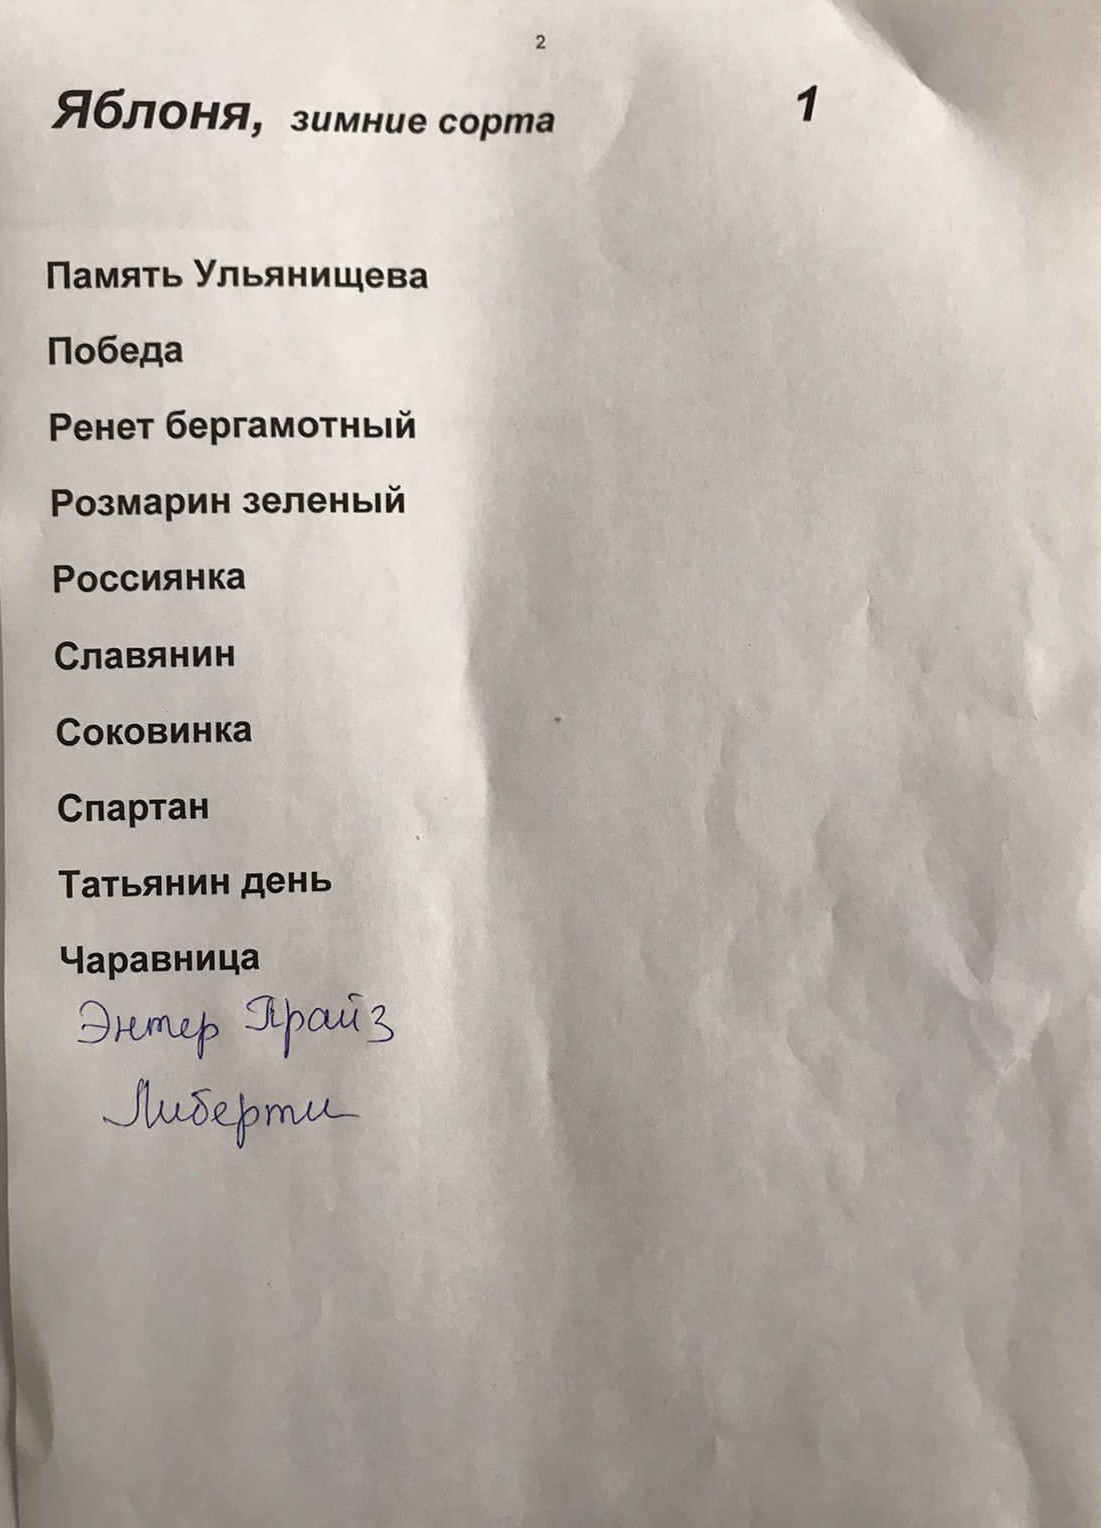 2
Яблоня, зимние сорта 1
Память Ульянищева
Победа
Ренет бергамотный
Розмарин зеленый
Россиянка
Славянин
Соковинка
Спартан
Татьянин день
Чаравница
Энтер Прайз
Либерти